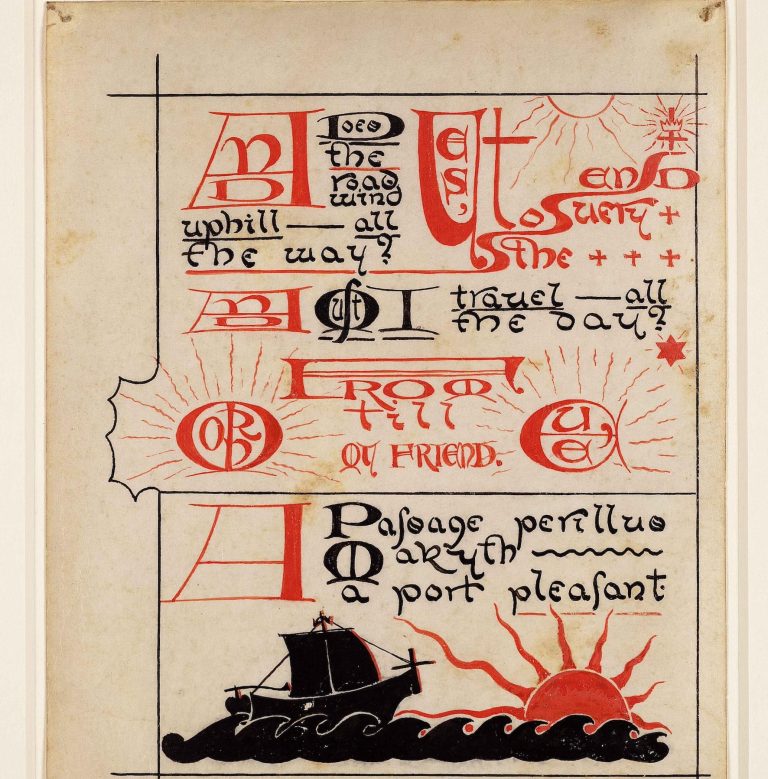 AND Does
the
road
wind
uphill — all
the way?
Yes, to
the + + +
uery +
end
AND Muſt I travel — all
the day?
From
Morn till Eue
my friend.
A Paſsage perillus
Makyth
a port pleaſant